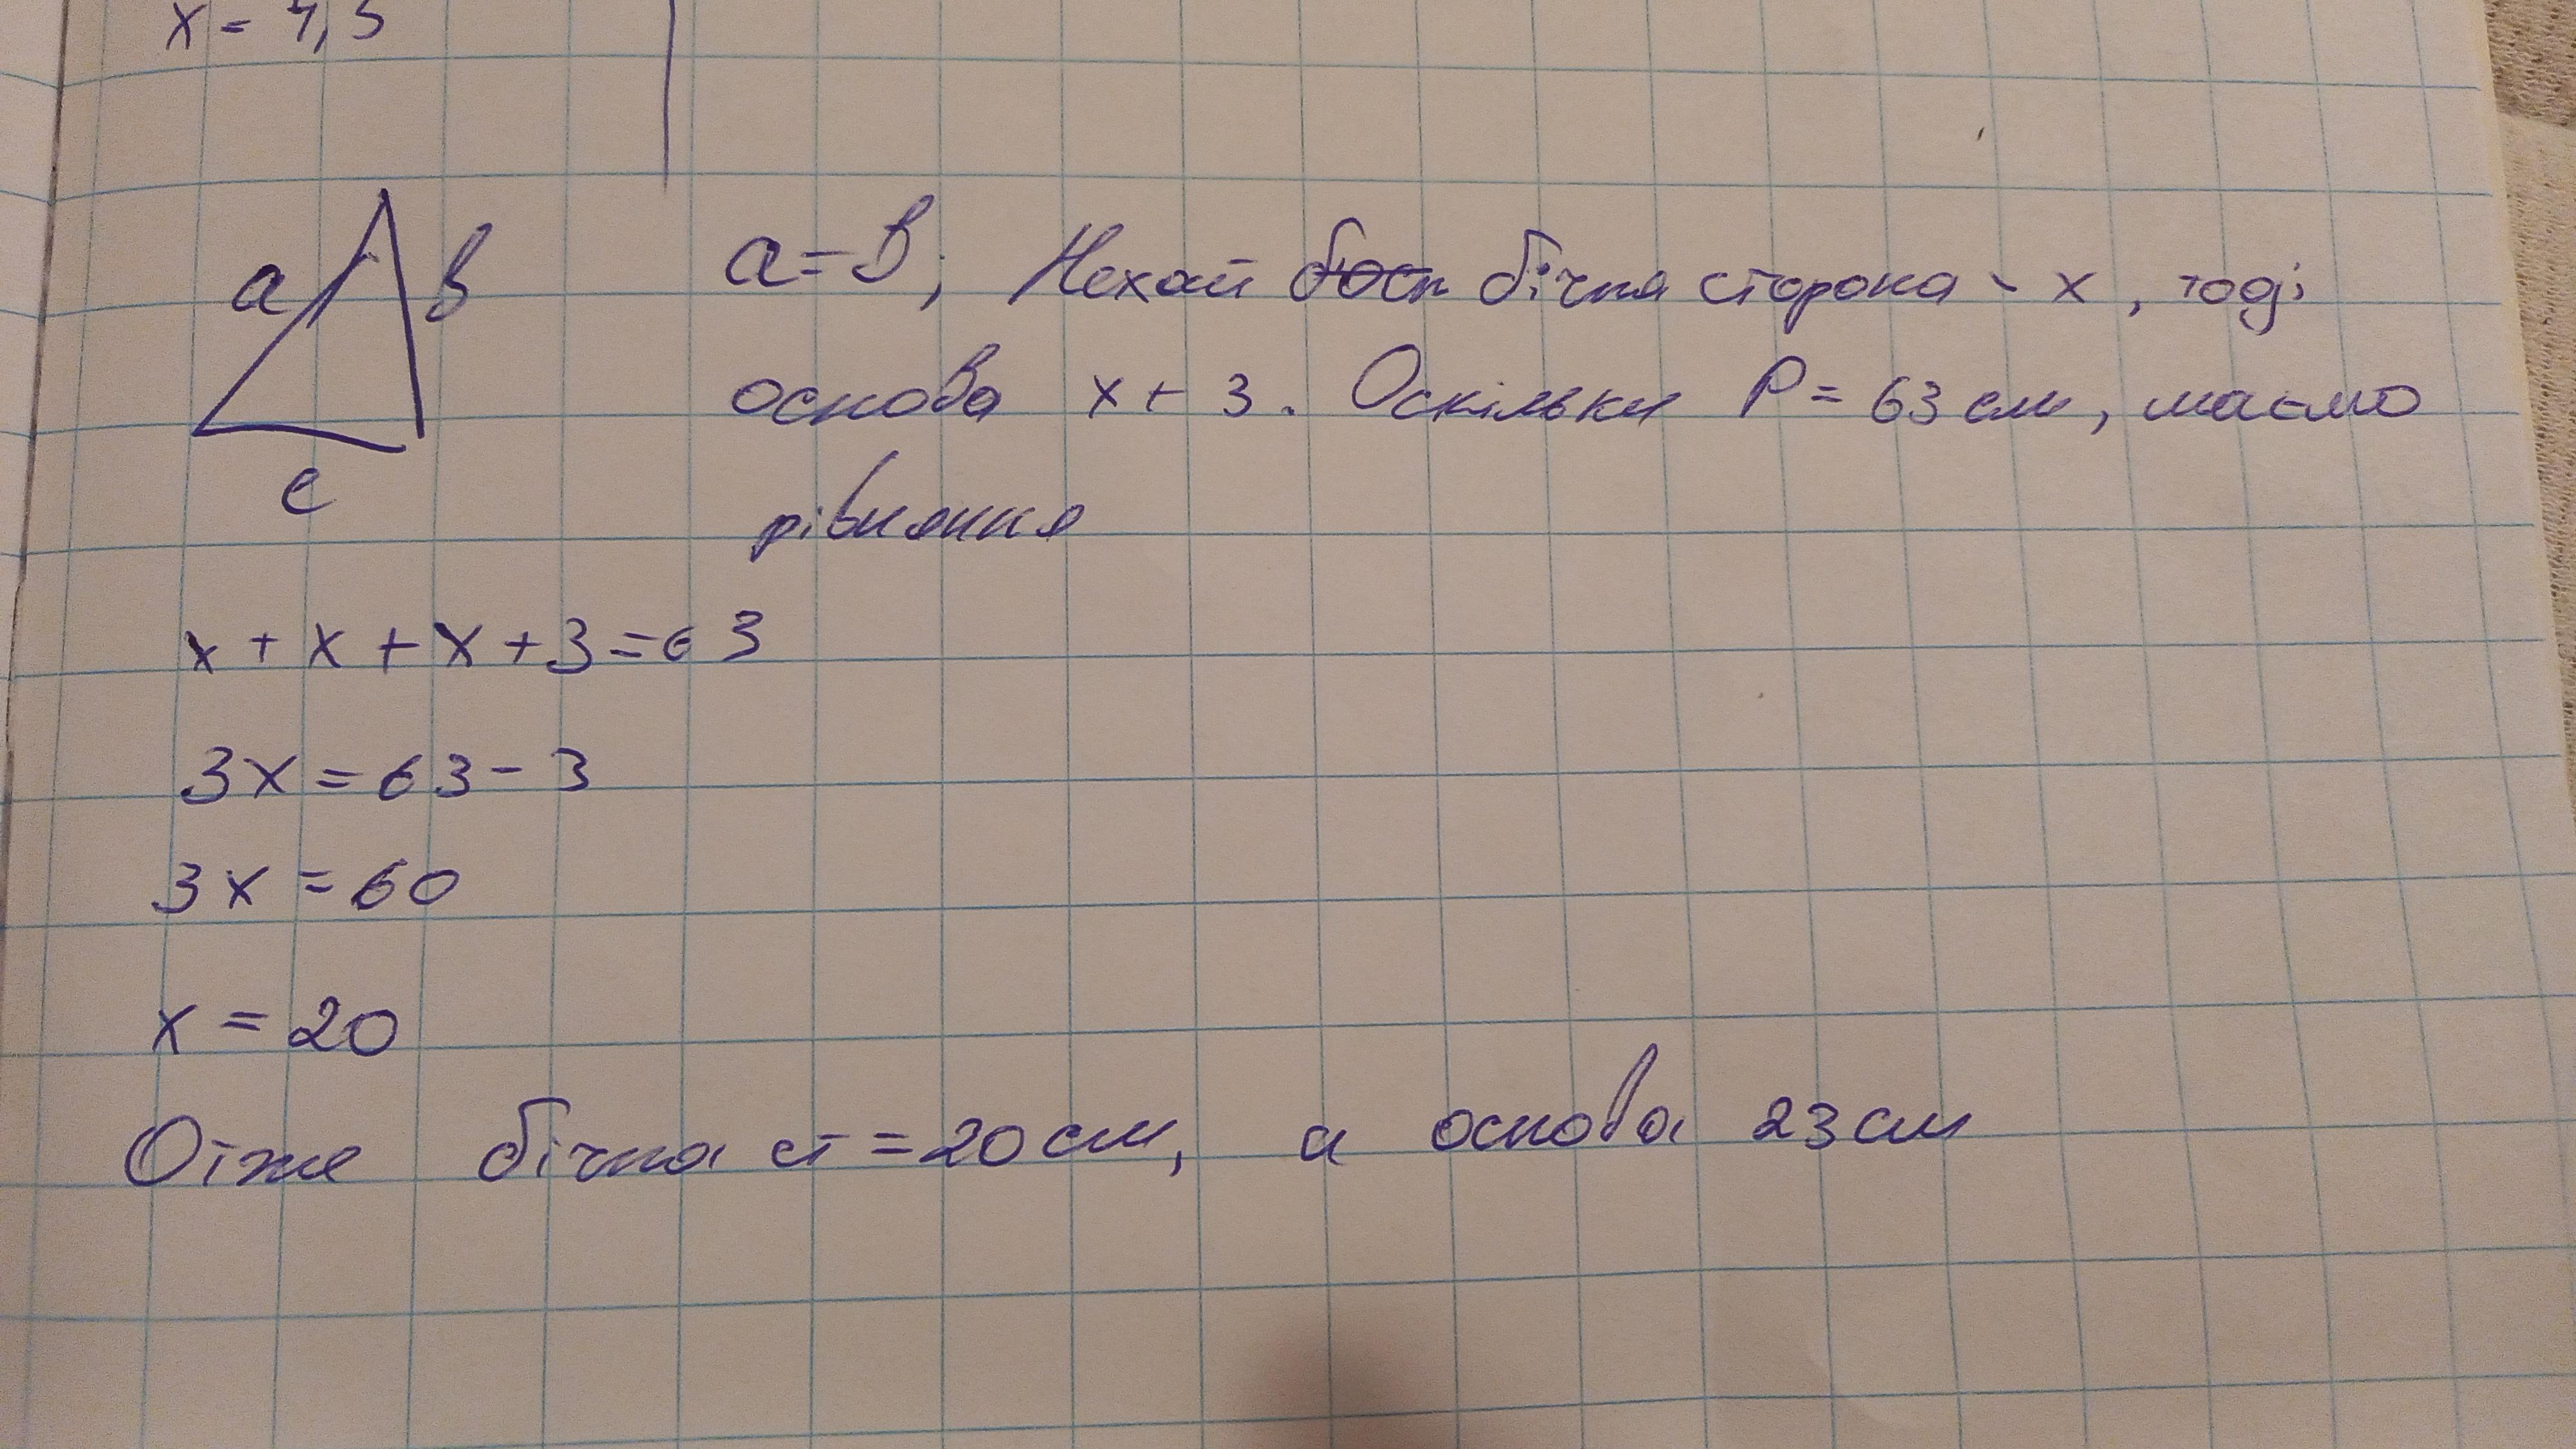 a
в
с
a = в; Нехай бічна сторона - x, тоді
основа x + 3. Оскільки P = 63 см, маємо
рівняння
x + x + x + 3 = 63
3x = 63 - 3
3x = 60
x = 20
Отже бічна ст = 20 см, а основа 23 см